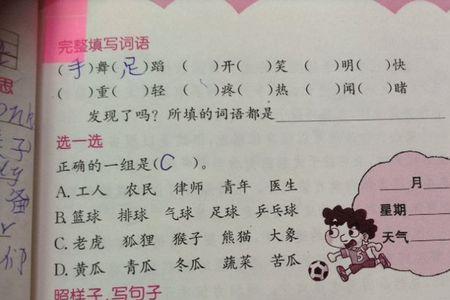 完整填写词语
(手)舞(足)蹈 ( )开( )笑 ( )明( )快
( )重( )轻 ( )疼( )热 ( )闻( )睹
发现了吗？所填的词语都是
选一选
正确的一组是(C)。
A. 工人 农民 律师 青年 医生
B. 篮球 排球 气球 足球 乒乓球
C. 老虎 狐狸 猴子 熊猫 大象
D. 黄瓜 青瓜 冬瓜 蔬菜 苦瓜
月
星期
天气
照样子,写句子